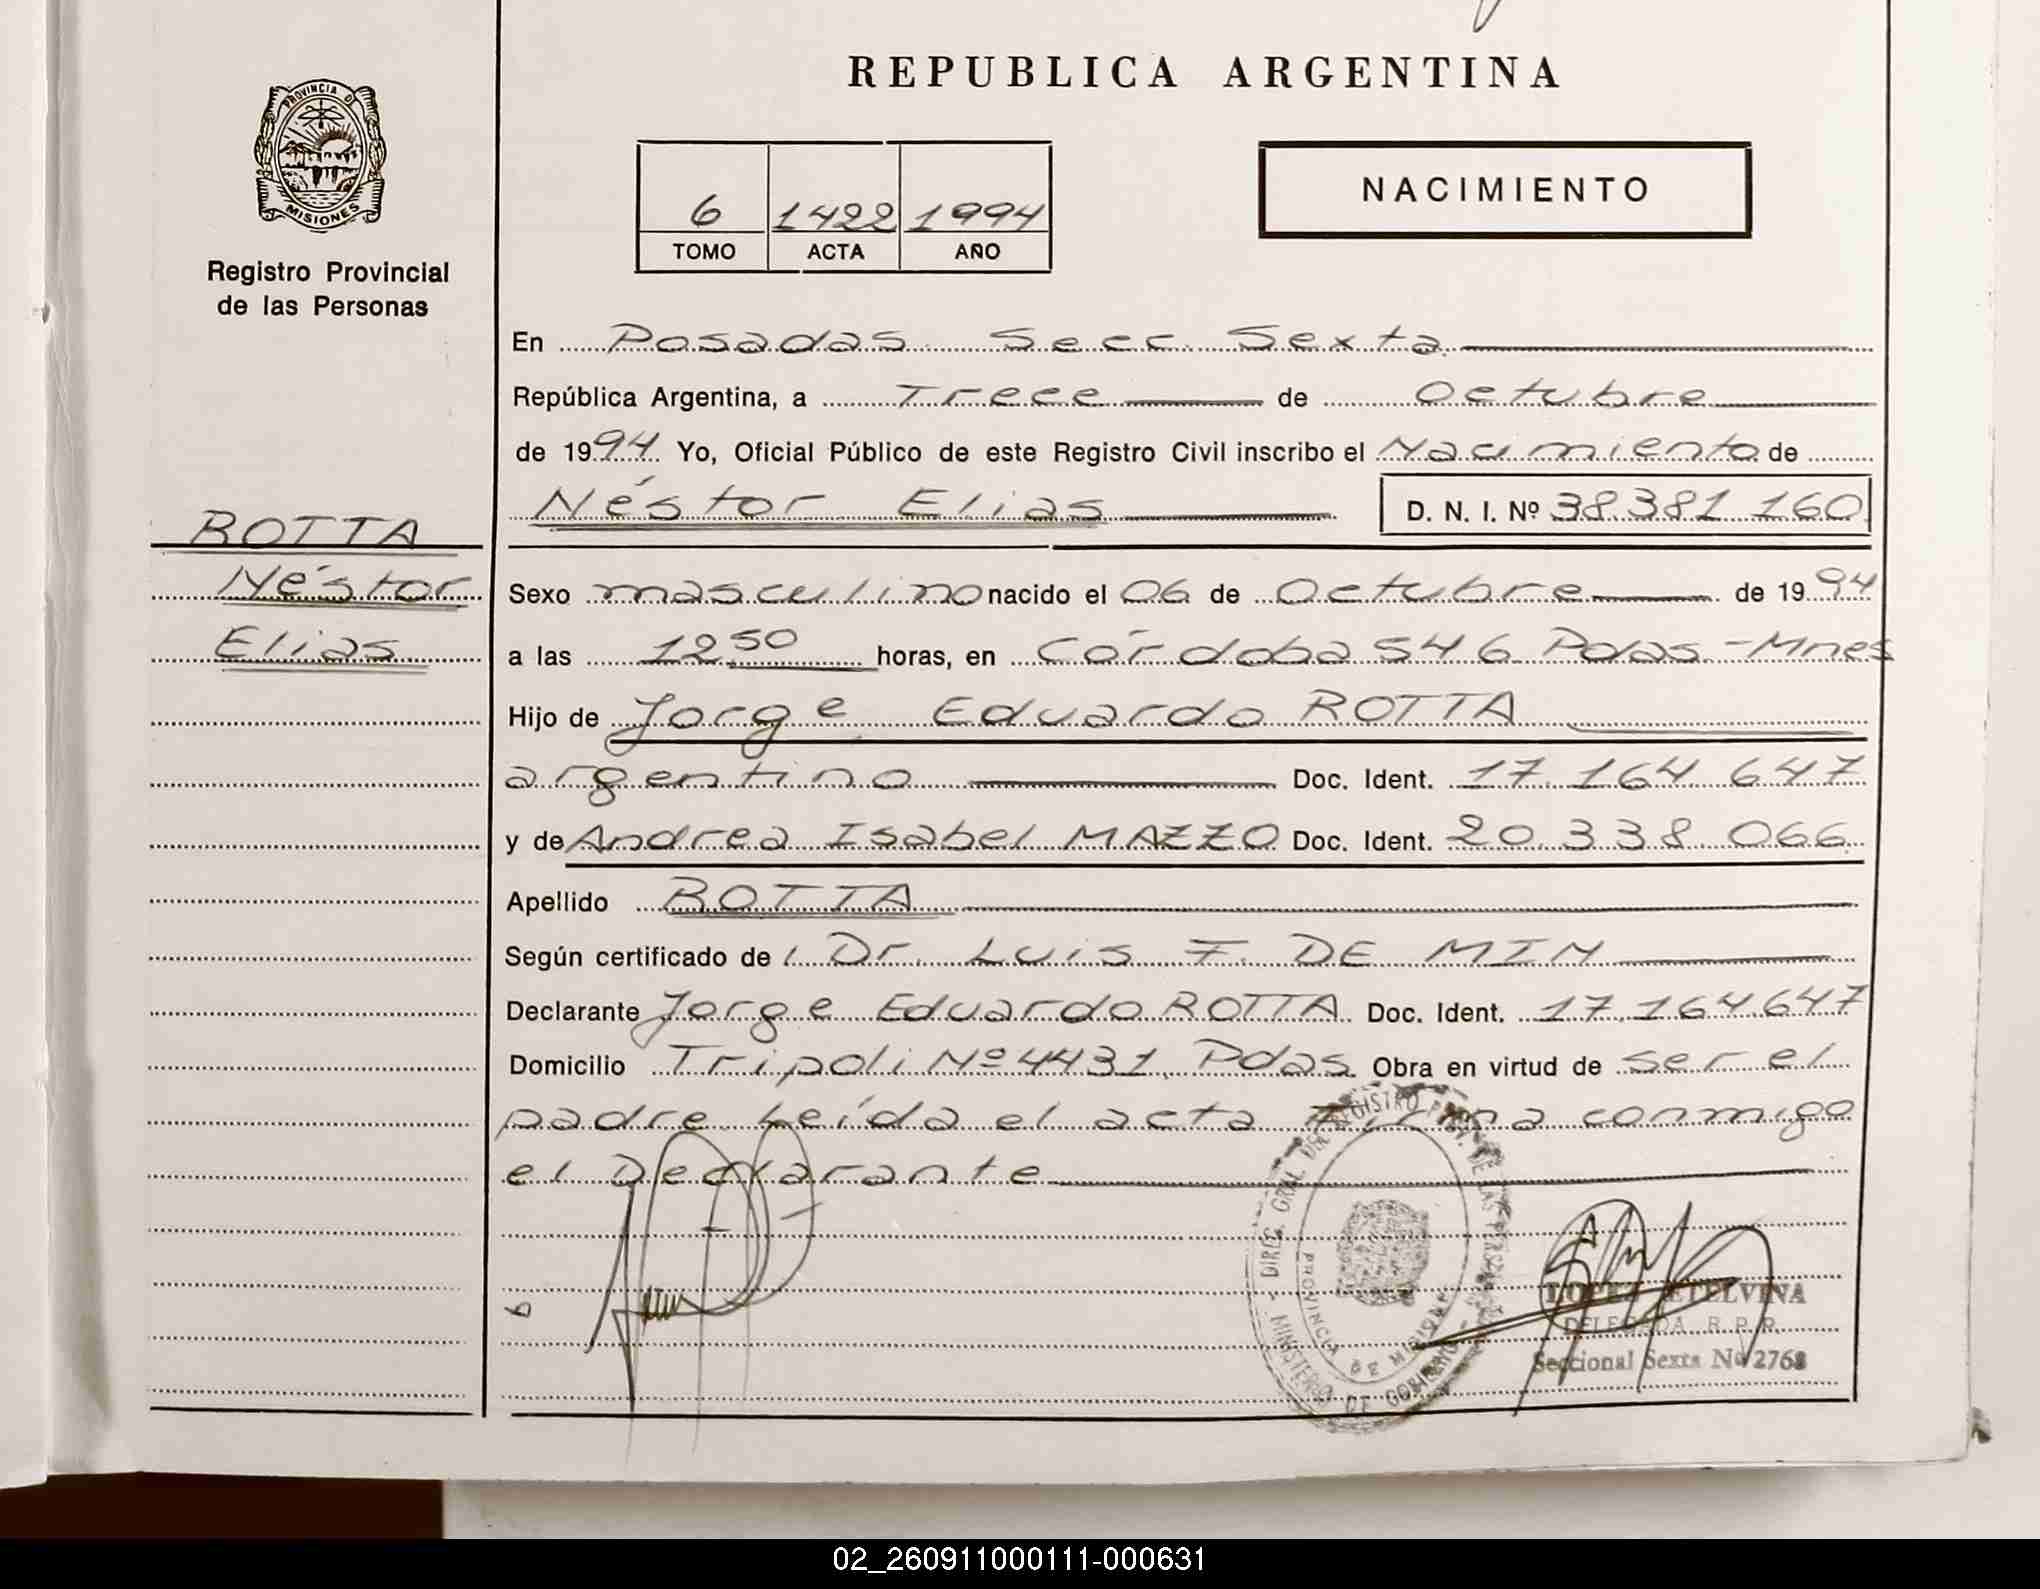 REPUBLICA ARGENTINA
PROVINCIA D
MISIONES
Registro Provincial
de las Personas
6 1422 1994
TOMO ACTA AÑO
NACIMIENTO
En Posadas Secc. Sexta
República Argentina, a Trece de Octubre
de 1994 Yo, Oficial Público de este Registro Civil inscribo el Nacimiento de
Néstor Elias D. N. I. Nº 38.381.160
ROTTA
Néstor
Elias
Sexo masculino nacido el 06 de Octubre de 1994
a las 12 50 horas, en Córdoba 546 Pdas - Mnes
Hijo de Jorge Eduardo ROTTA
argentino Doc. Ident. 17.164.647
y de Andrea Isabel MAZZO Doc. Ident. 20.338.066
Apellido ROTTA
Según certificado de Dr. Luis F. DE MIN
Declarante Jorge Eduardo ROTTA Doc. Ident. 17.164.647
Domicilio Tripoli Nº 4431 Pdas. Obra en virtud de ser el
padre Leída el acta Firma conmigo
el Declarante
DIREC. GRAL. DE REGISTRO PROV. DE LAS PERSONAS
MINISTERIO DE GOBIERNO
PROVINCIA DE MISIONES
LOPEZ ETELVINA
DELEGADA R. P. P.
Seccional Sexta Nº 2768
02_260911000111-000631